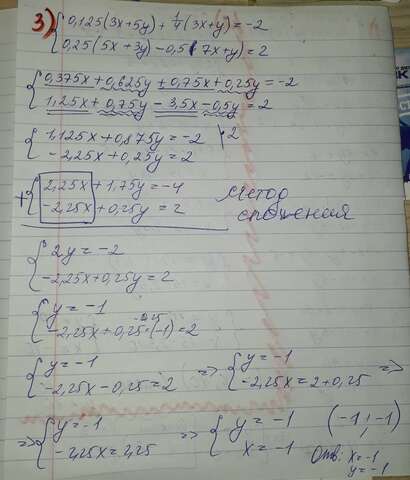 3) { 0,125(3x+5y) + 1/4(3x+y) = -2
{ 0,25(5x+3y) - 0,5(7x+y) = 2
{ 0,375x + 0,625y + 0,75x + 0,25y = -2
{ 1,25x + 0,75y - 3,5x - 0,5y = 2
{ 1,125x + 0,875y = -2 | ·2
{ -2,25x + 0,25y = 2
+ { 2,25x + 1,75y = -4
{ -2,25x + 0,25y = 2
метод
сложения
{ 2y = -2
{ -2,25x + 0,25y = 2
{ y = -1
{ -2,25x + 0,25·(-1) = 2
{ y = -1
{ -2,25x - 0,25 = 2
=> { y = -1
{ -2,25x = 2 + 0,25 =>
=> { y = -1
{ -2,25x = 2,25
=> { y = -1
{ x = -1
(-1; -1)
Отв: x = -1
y = -1